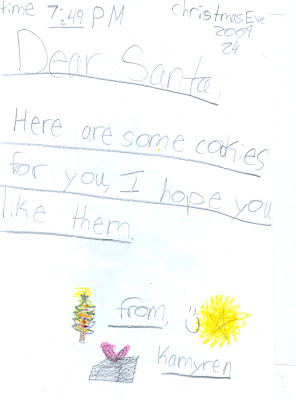 time 7:49 PM
christmas Eve
2009
24
Dear Santa,
Here are some cookies
for you, I hope you
like them.
from,
Kamyren